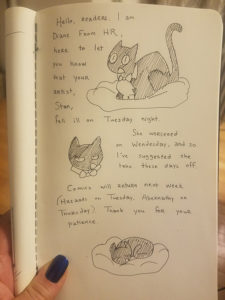 Hello, readers. I am
Diane From HR,
here to let
you know
that your
artist,
Stan,
fell ill on Tuesday night.
She worsened
on Wednesday, and so
I've suggested she
take these days off.
Comics will return next week
on Tuesday,
on
Thursday) Thank you for your
patience.